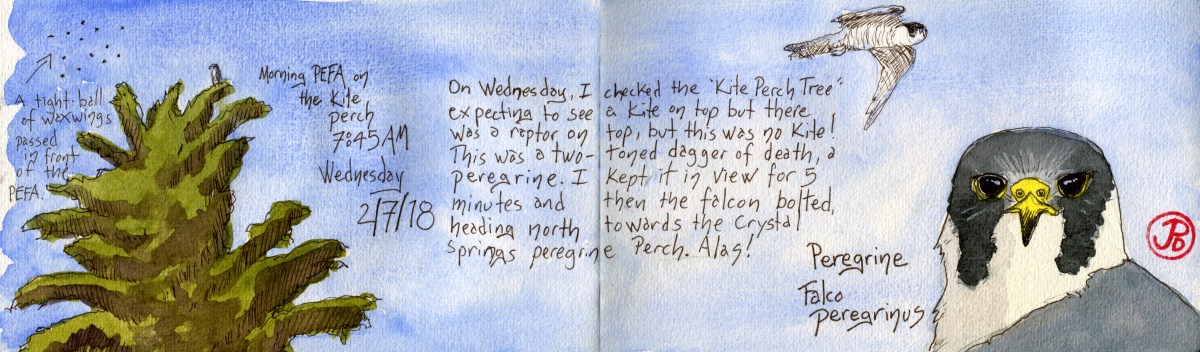 A tight-ball
of waxwings
passed
in front
of the
PEFA.
Morning PEFA on
the Kite
perch
7:45 AM
Wednesday
2/7/18
On Wednesday, I checked the "Kite Perch Tree"
expecting to see a Kite on top but there
was a raptor on top, but this was no Kite!
This was a two-toned dagger of death, a
peregrine. I kept it in view for 5
minutes and then the falcon bolted,
heading north towards the Crystal
Springs peregrine Perch. Alas!
Peregrine
Falco
peregrinus
JPD